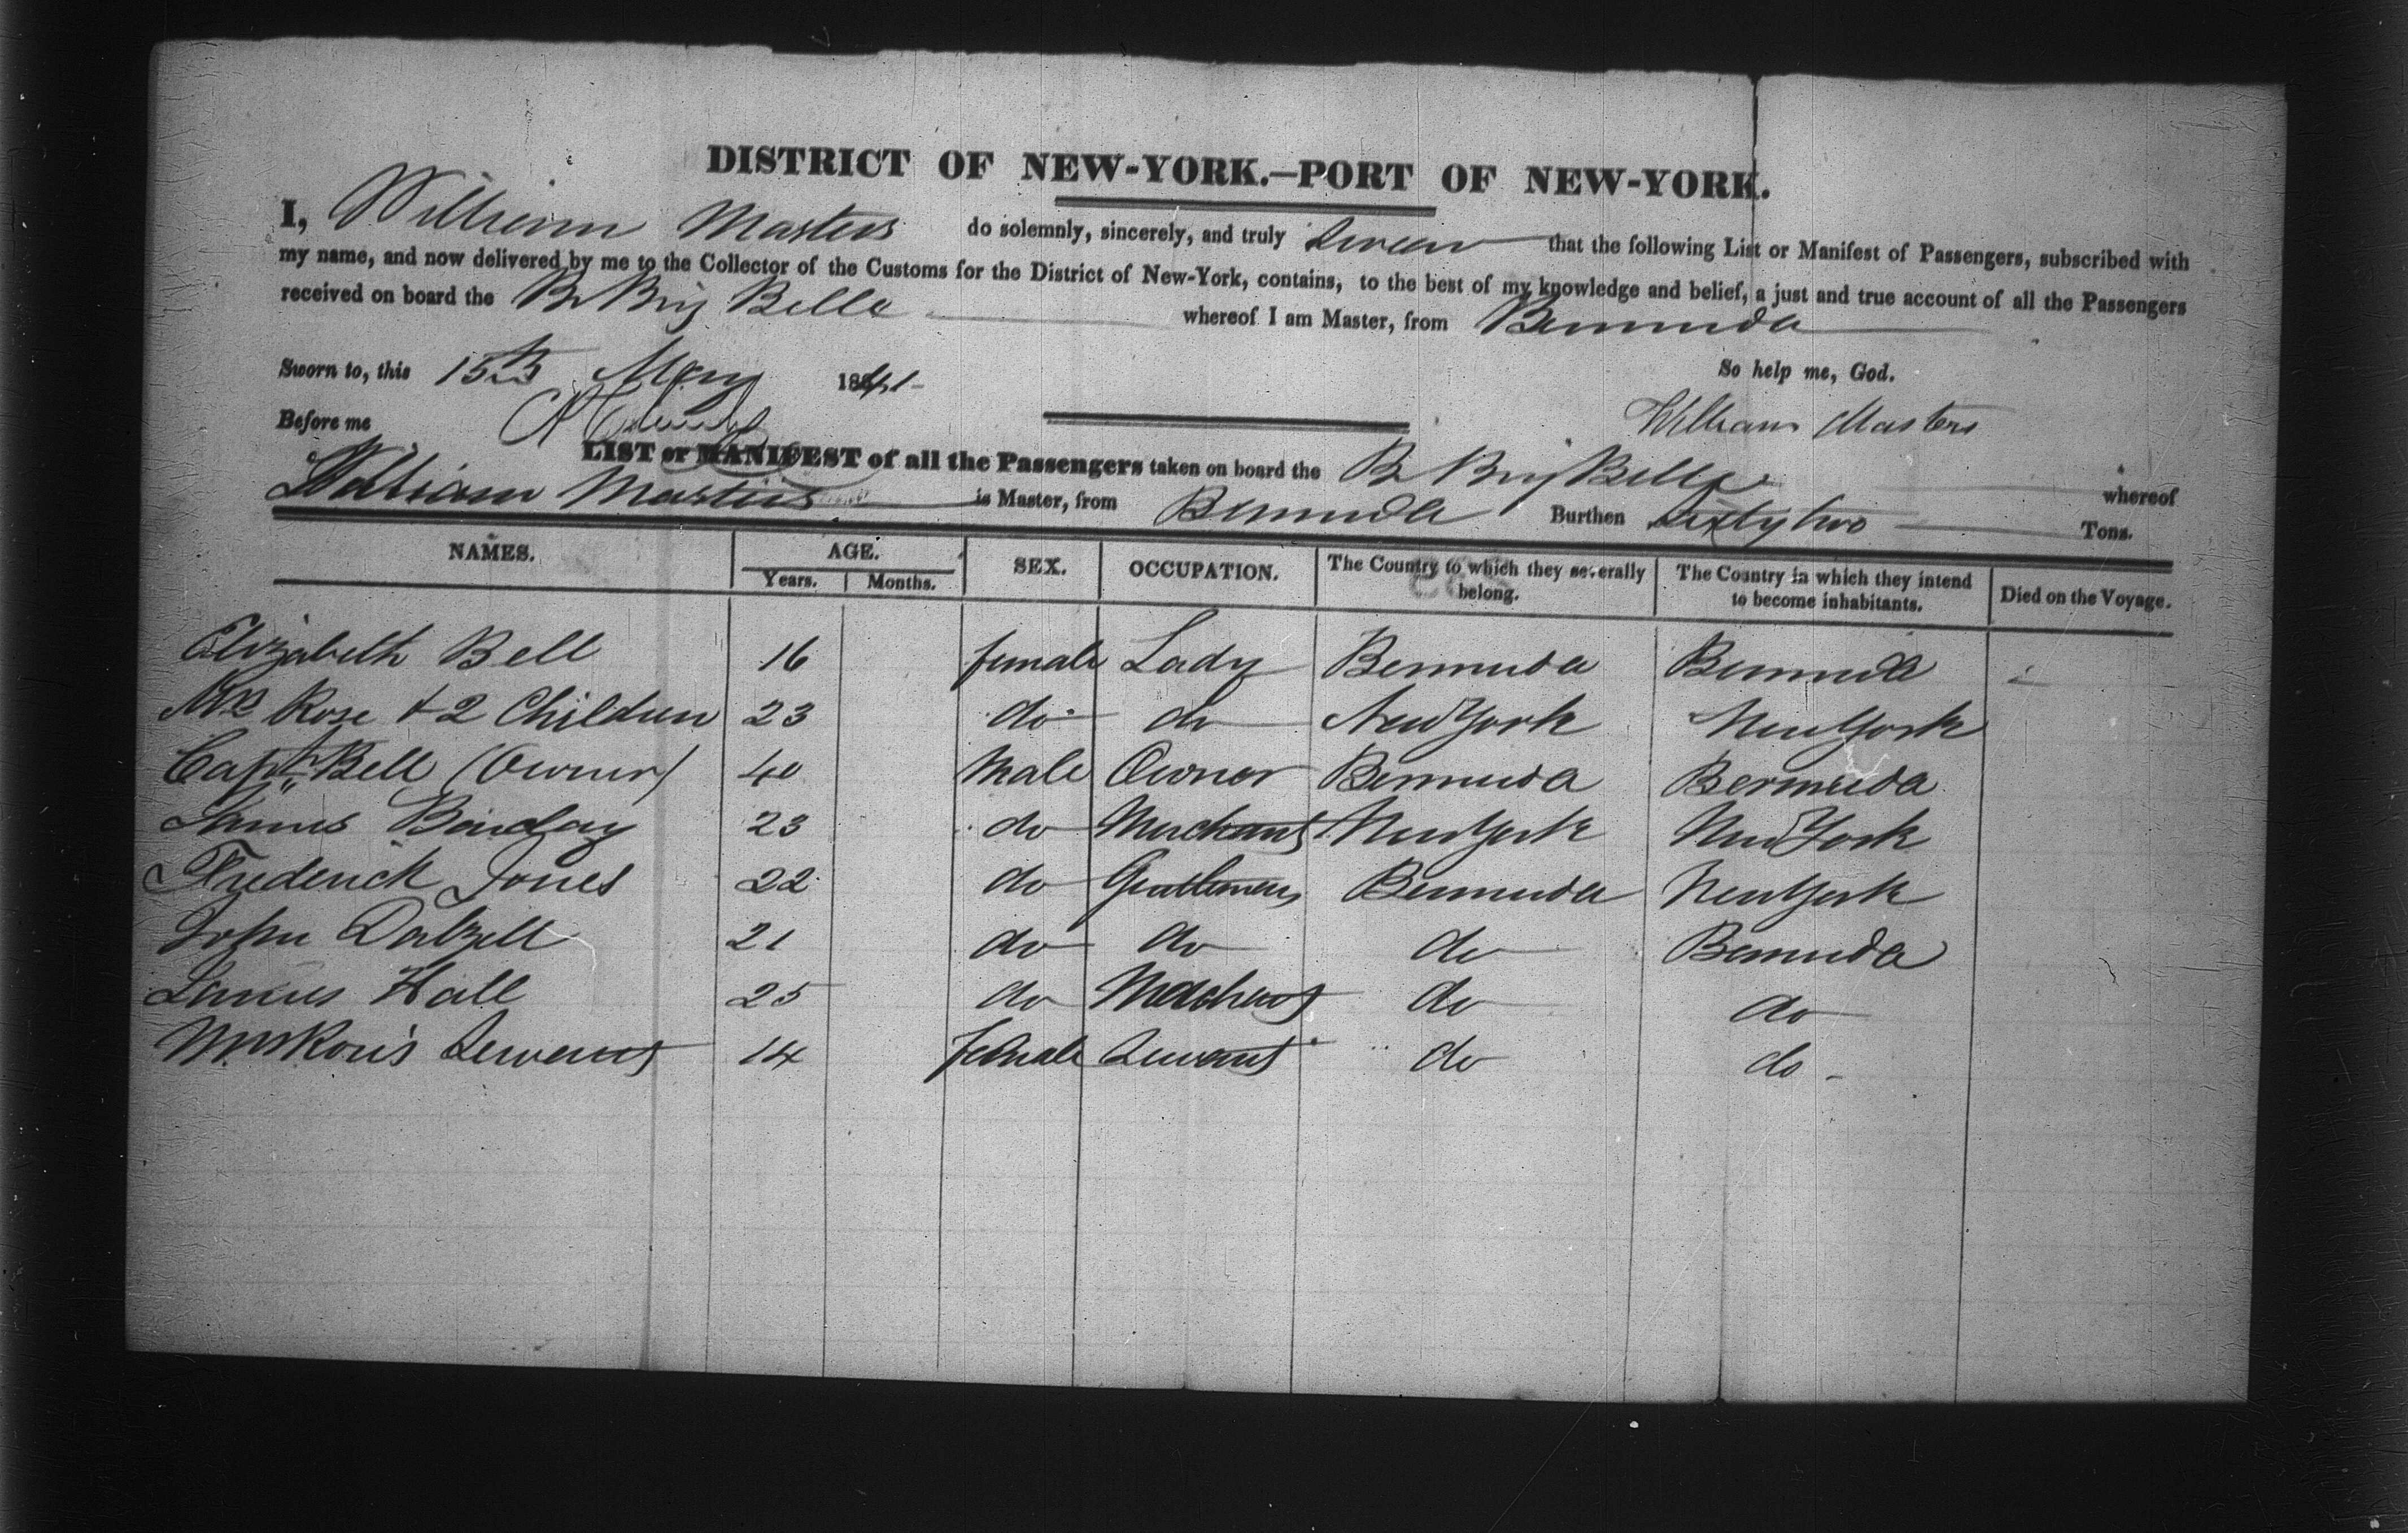 DISTRICT OF NEW-YORK.—PORT OF NEW-YORK.
I, William Masters do solemnly, sincerely, and truly swear that the following List or Manifest of Passengers, subscribed with
my name, and now delivered by me to the Collector of the Customs for the District of New-York, contains, to the best of my knowledge and belief, a just and true account of all the Passengers
received on board the Br Brig Bella whereof I am Master, from Bermuda
Sworn to, this 15th May 1841 So help me, God.
Before me William Masters
LIST or MANIFEST of all the Passengers taken on board the Br Brig Bella whereof
William Masters is Master, from Bermuda Burthen Sixty two Tons.
NAMES. AGE. SEX. OCCUPATION. The Country to which they severally belong. The Country in which they intend to become inhabitants. Died on the Voyage.
Years. Months.
Elizabeth Bell 16 female Lady Bermuda Bermuda
Mrs Rose & 2 Children 23 do do New York New York
Capt Bell (Owner) 40 Male Owner Bermuda Bermuda
James 23 do Merchant New York New York
Frederick Jones 22 do Gentleman Bermuda New York
John Dalzell 21 do do do Bermuda
James Hall 25 do Merchant do do
Mrs Rose's Servant 14 female Servant do do